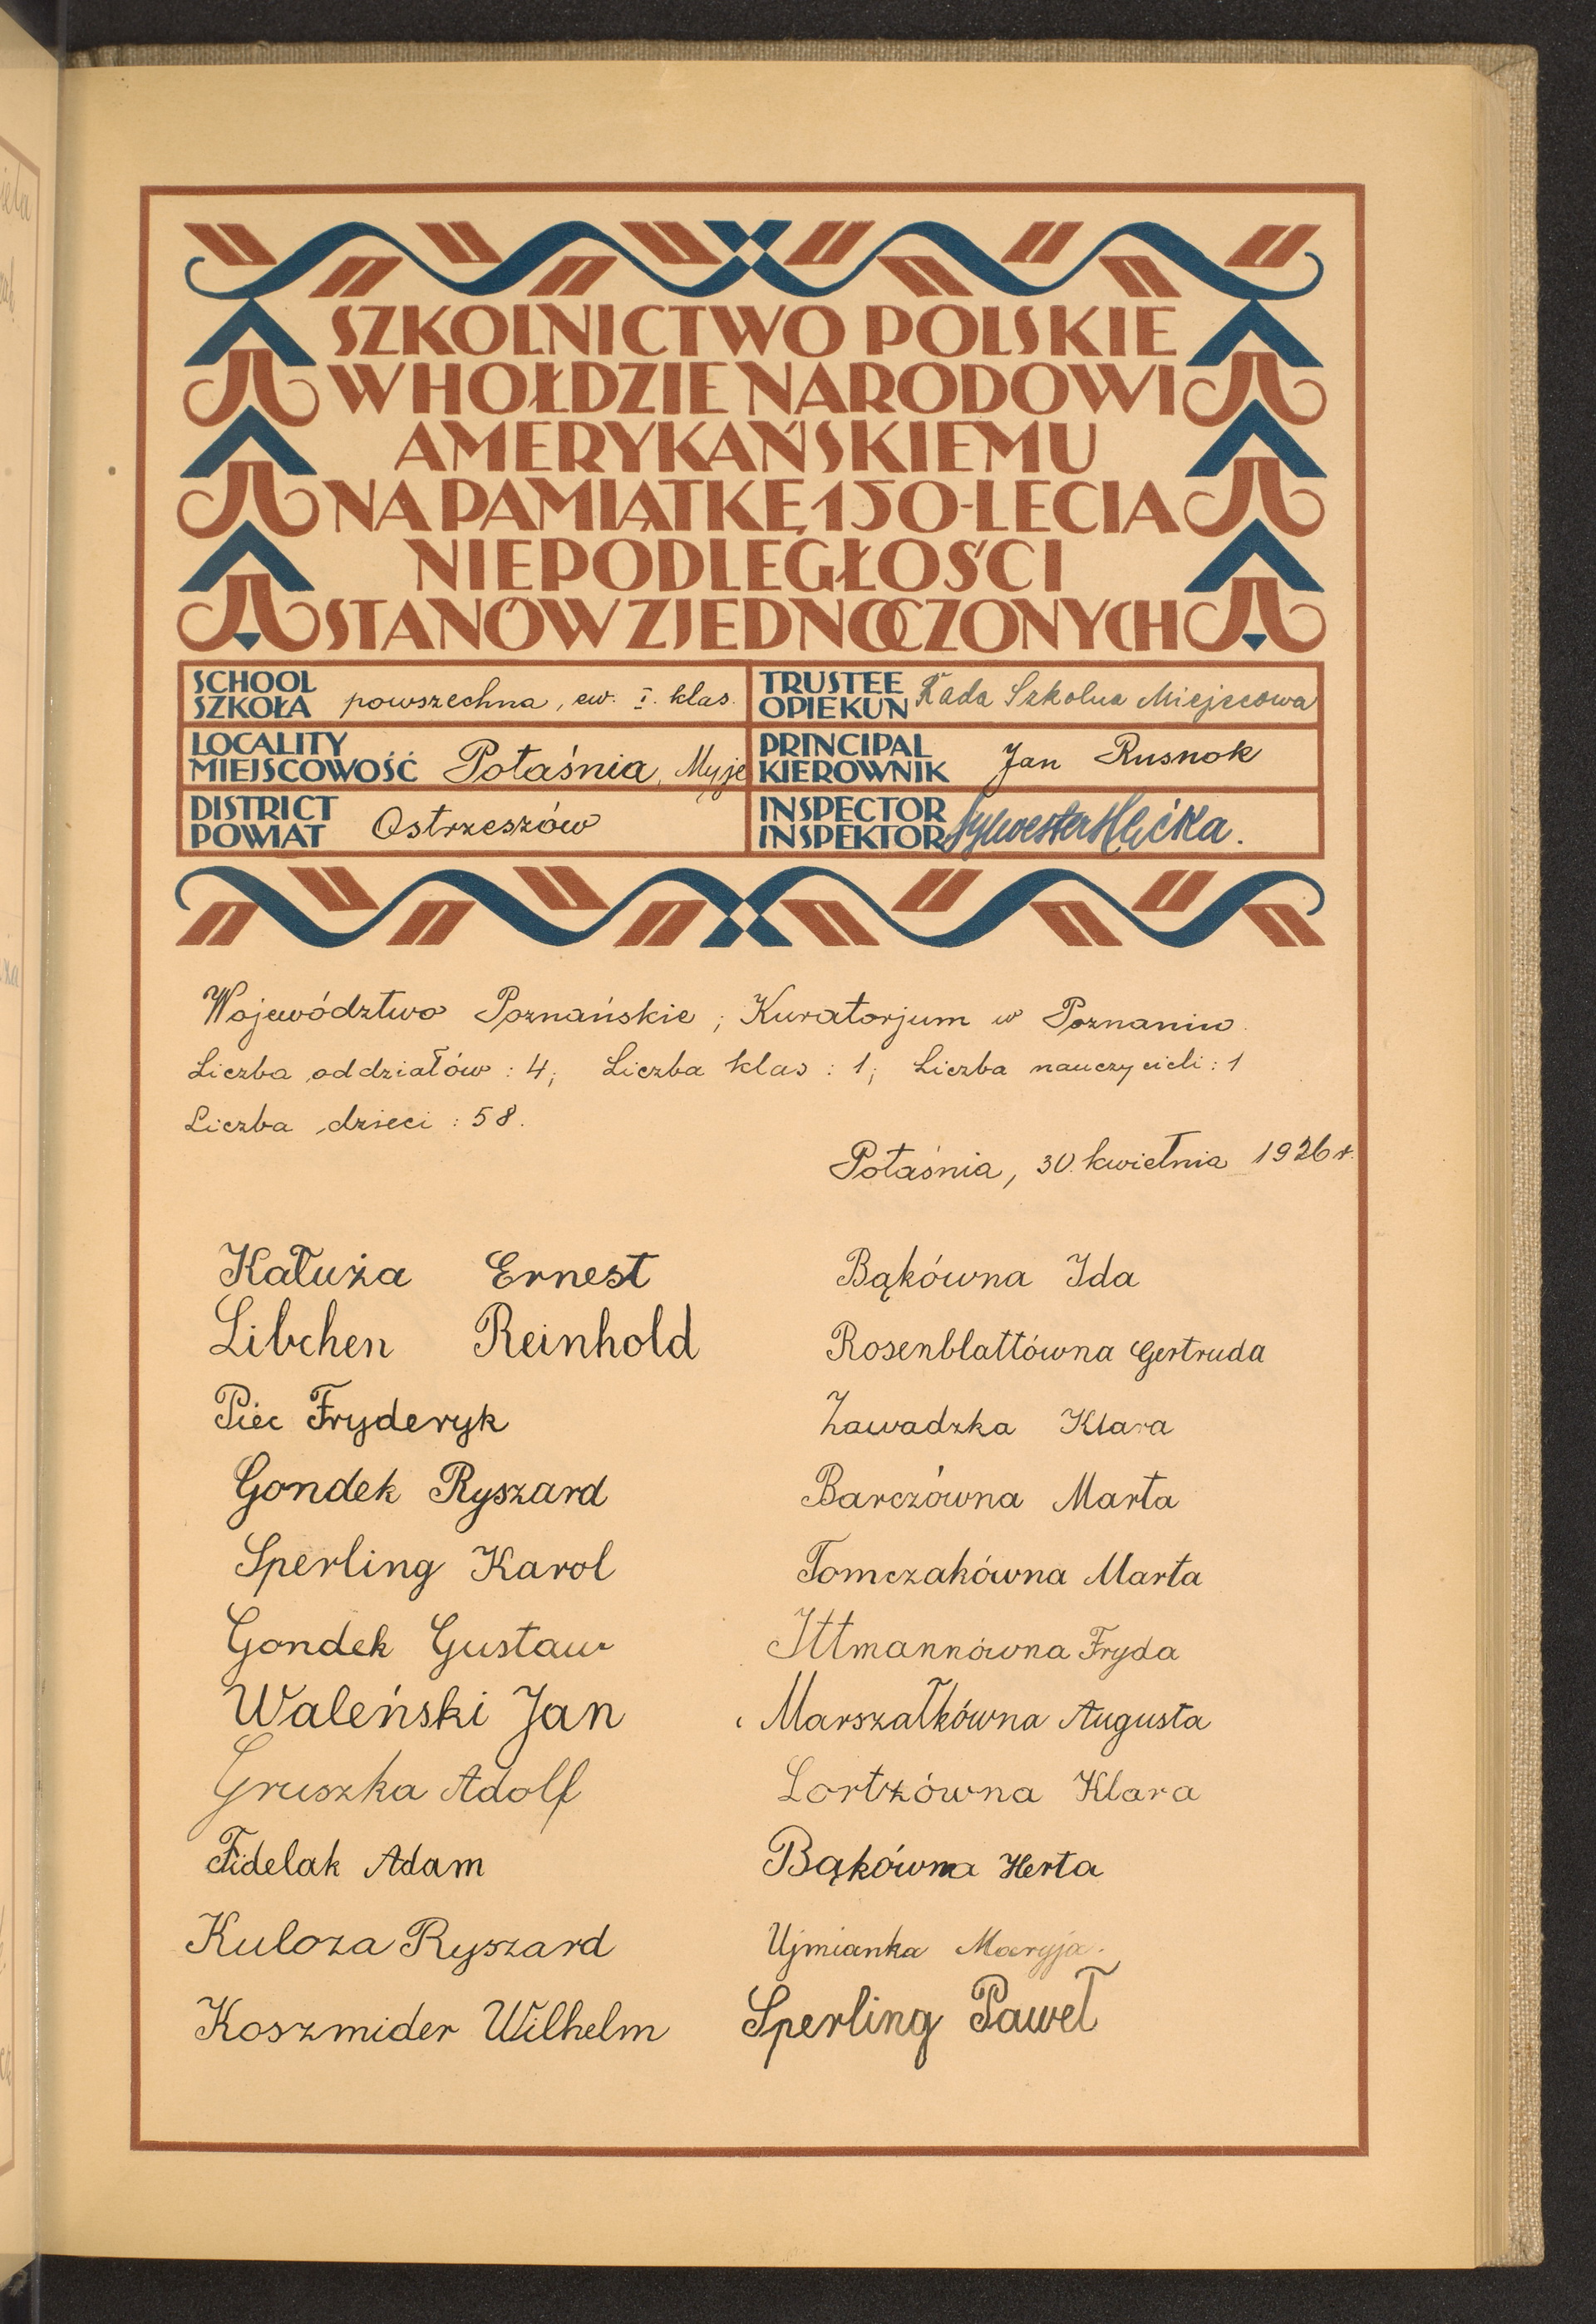 SZKOLNICTWO POLSKIE
W HOŁDZIE NARODOWI
AMERYKAŃSKIEMU
NA PAMIĄTKĘ 150-LECIA
NIEPODLEGŁOŚCI
STANÓW ZJEDNOCZONYCH
SCHOOL
SZKOŁA powszechna, ew. I. klas.
TRUSTEE
OPIEKUN Rada Szkolna Miejscowa
LOCALITY
MIEJSCOWOŚĆ Potaśnia, Myje
PRINCIPAL
KIEROWNIK Jan Rusnok
DISTRICT
POWIAT Ostrzeszów
INSPECTOR
INSPEKTOR Sylwester
Województwo Poznańskie; Kuratorjum w Poznaniu.
Liczba oddziałów : 4; Liczba klas : 1; Liczba nauczycieli : 1
Liczba dzieci : 58.
Potaśnia, 30. kwietnia 1926 r.
Kałuża Ernest
Libchen Reinhold
Piec Fryderyk
Gondek Ryszard
Sperling Karol
Gondek Gustaw
Waleński Jan
Gruszka Adolf
Fidelak Adam
Kuloza Ryszard
Koszmider Wilhelm
Bąkówna Ida
Rosenblattówna Gertruda
Zawadzka Klara
Barczówna Marta
Tomczakówna Marta
Ittmannówna Fryda
Marszałkówna Augusta
Lortzówna Klara
Bąkówna Herta
Ujmianka Maryja.
Sperling Paweł